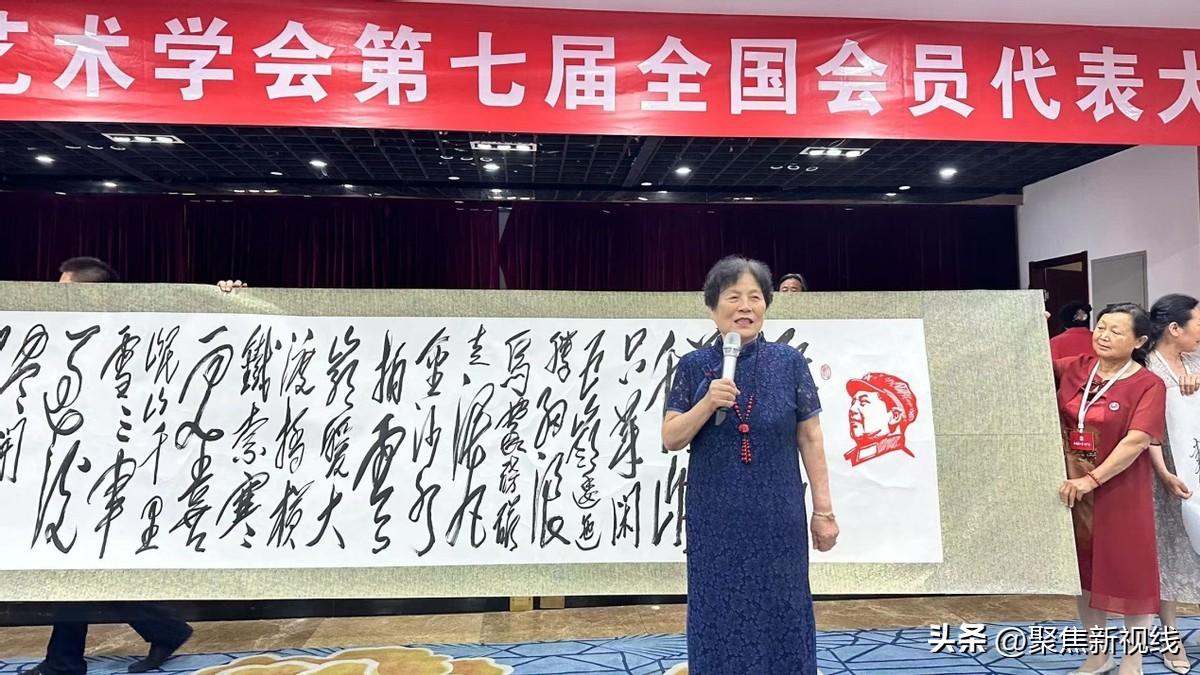 艺术学会第七届全国会员代表大
只等闲
五嶺逶迤
腾细浪
乌蒙磅礴
走泥丸
金沙水
拍雲
崖暖大
渡橋横
鐵索寒
更喜
岷山千里
雪三軍
过後
尽開
头条 @聚焦新视线